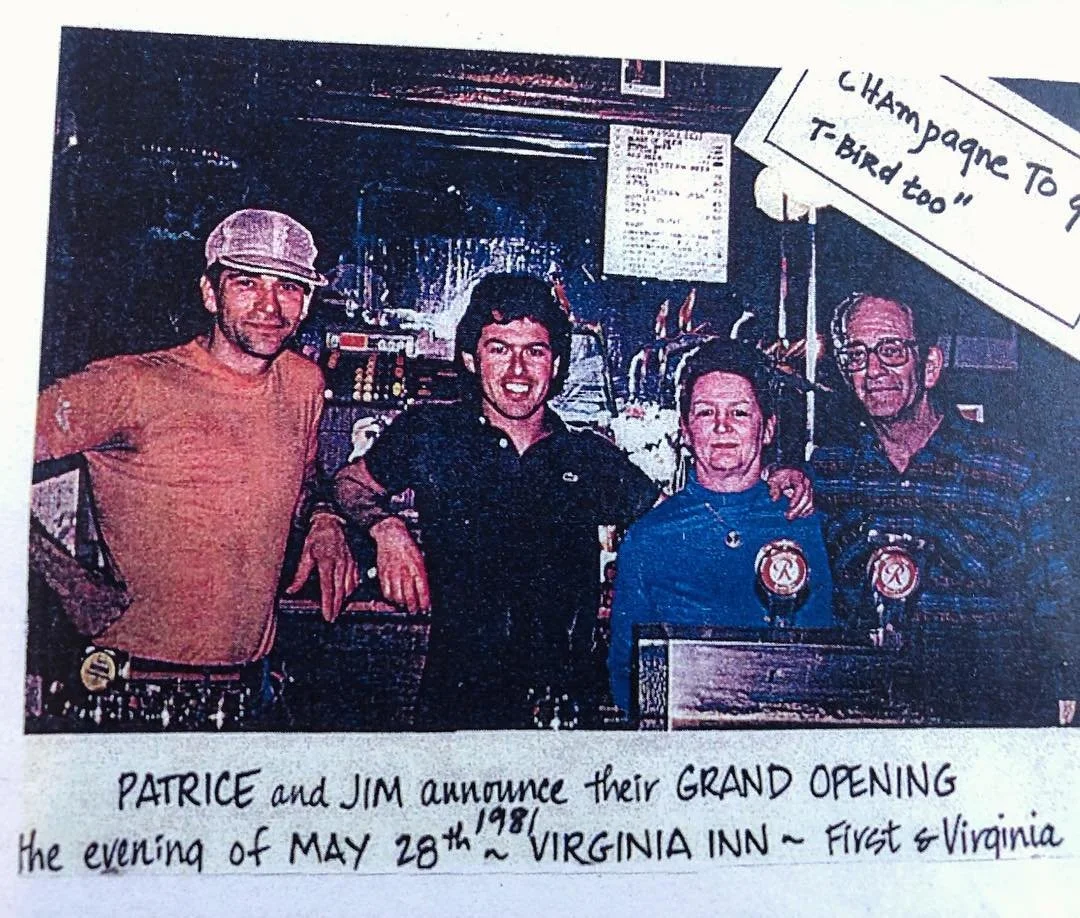 CHAmpagne To
T-BiRd too"
R
R
PATRICE and JIM announce their GRAND OPENING
1981
the evening of MAY 28th ~ VIRGINIA INN ~ First & Virginia